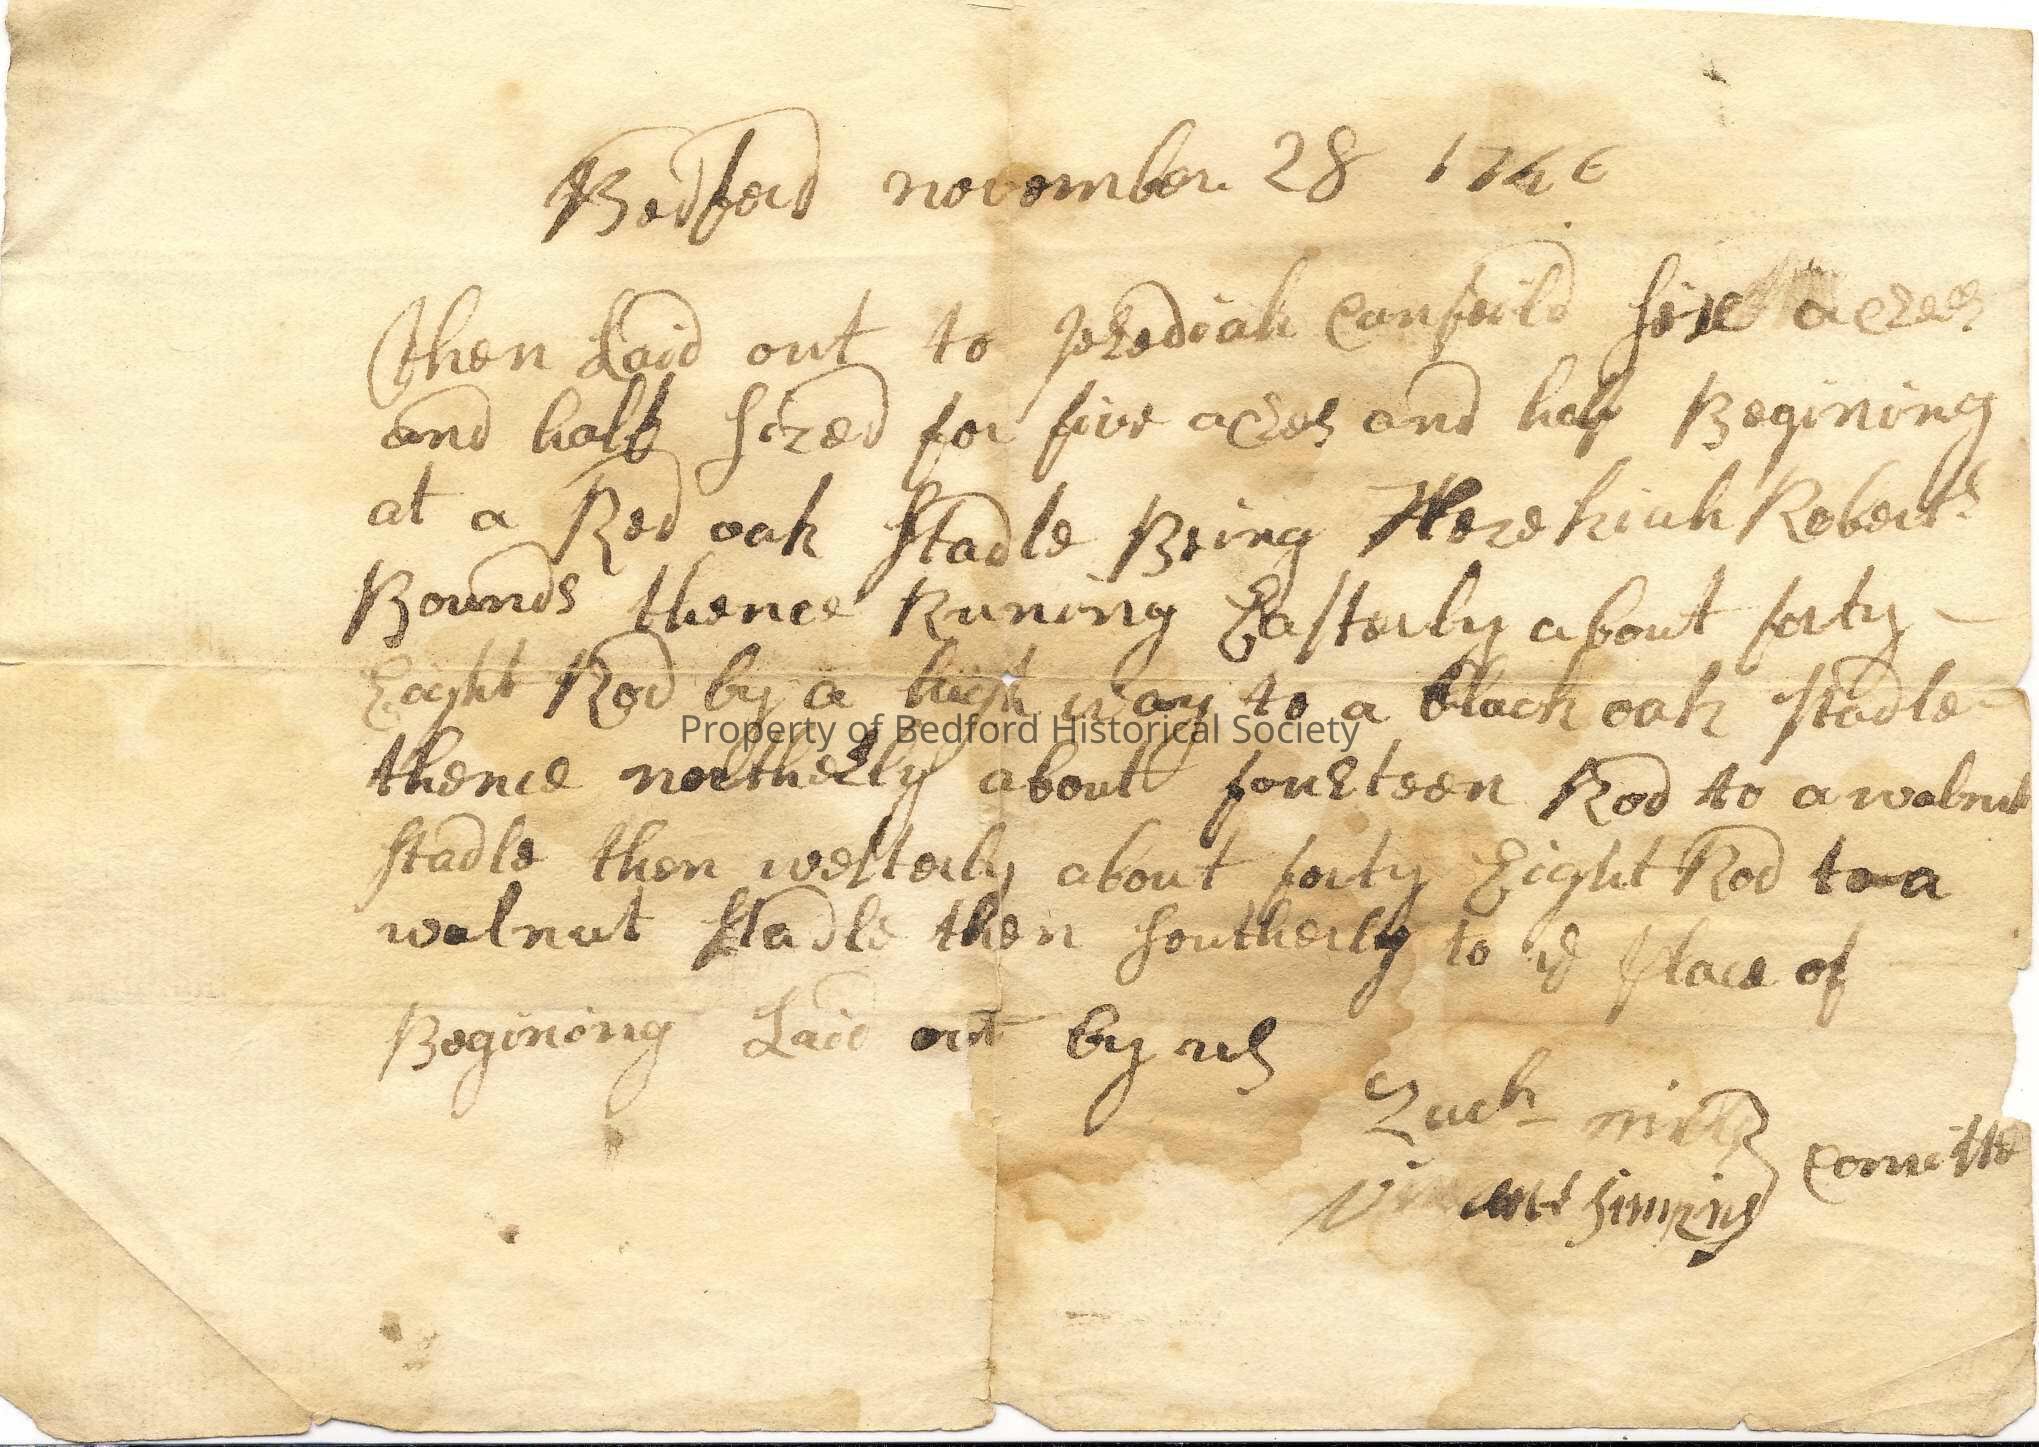 Bedford november 28 1746
then Laid out to Jerediah Canfeild six acres
and half sized for five acres and half Begining
at a Red oak stadle Being Hezekiah Roberts
Bounds thence Runing Easterly about forty
Eaight Rod by a high way to a black oak stadle
Property of Bedford Historical Society
thence northerly about fourteen Rod to a walnut
stadle then westerly about forty Eight Rod to a
walnut stadle then southerly to ye place of
Begining Laid out by us
Zach
Comitte